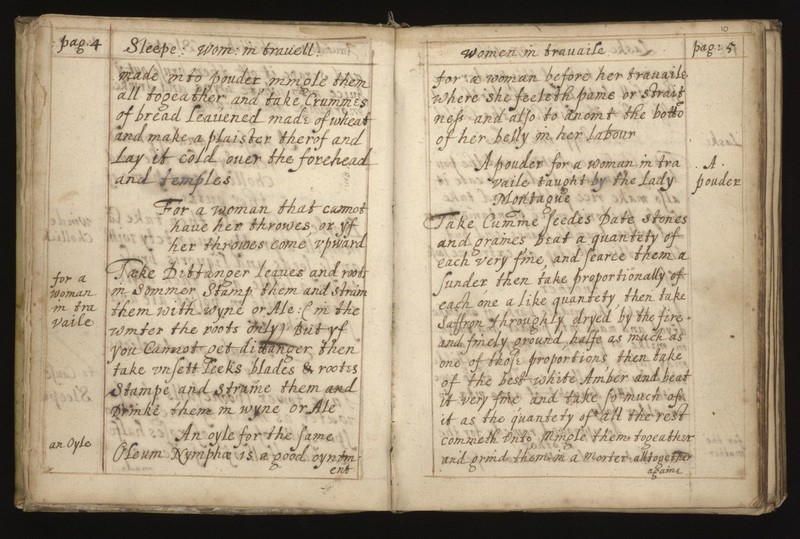 pag: 4
Sleepe: wom: in travell:
made into pouder mingle them
all togeather and take Crummes
of bread leauened made of wheat
and make a plaister therof and
Lay it cold ouer the forehead
and temples
For a woman that cannot
haue her throwes, or yf
her throwes come vpward
for a
woman
in tra
vaile
Take Dittanger leaues and roots
in Sommer Stamp them and strain
them with wyne or Ale: (in the
winter the roots only) But yf
you Cannot get dittanger then
take vnsett Leeks blades & rootes
Stampe and straine them and
Drinke them in wyne or Ale
an Oyle
An oyle for the same
Oleum Nymphæ is a good oyntm
ent
10
women in trauaile
pag: 5
for a woman before her trauaile
where she feeleth paine or strait
ness and also to anoint the botto
of her belly in her labour
A
pouder
A pouder for a woman in tra
vaile taught by the Lady
Montague
Take Cumine seedes Date stones
and graines beat a quantety of
each very fine and searce them a
sunder then take proportionally of
each one a like quantety then take
Saffron throughly dryed by the fire
and finely ground, halfe as much as
one of those proportions then take
of the best white Amber and beat
it very fine and take so much of
it as the quantety of all the rest
commeth vnto mingle them togeather
and grind them in a morter alltogether
againe